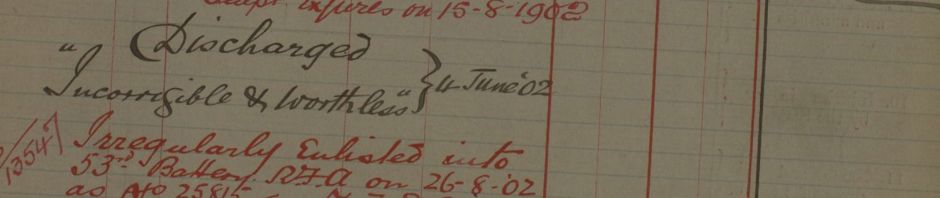 expires on 15-8-1902
" Discharged
Incorrigible & Worthless" } 4 June '02
/13547 Irregularly Enlisted into
53rd Battery R.F.A on 26-8-'02
as No 25815